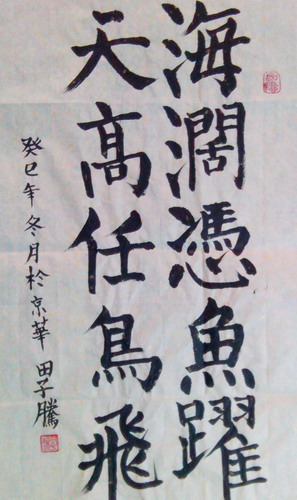 海濶憑魚躍
天高任鳥飛
癸巳年冬月於京華田子騰